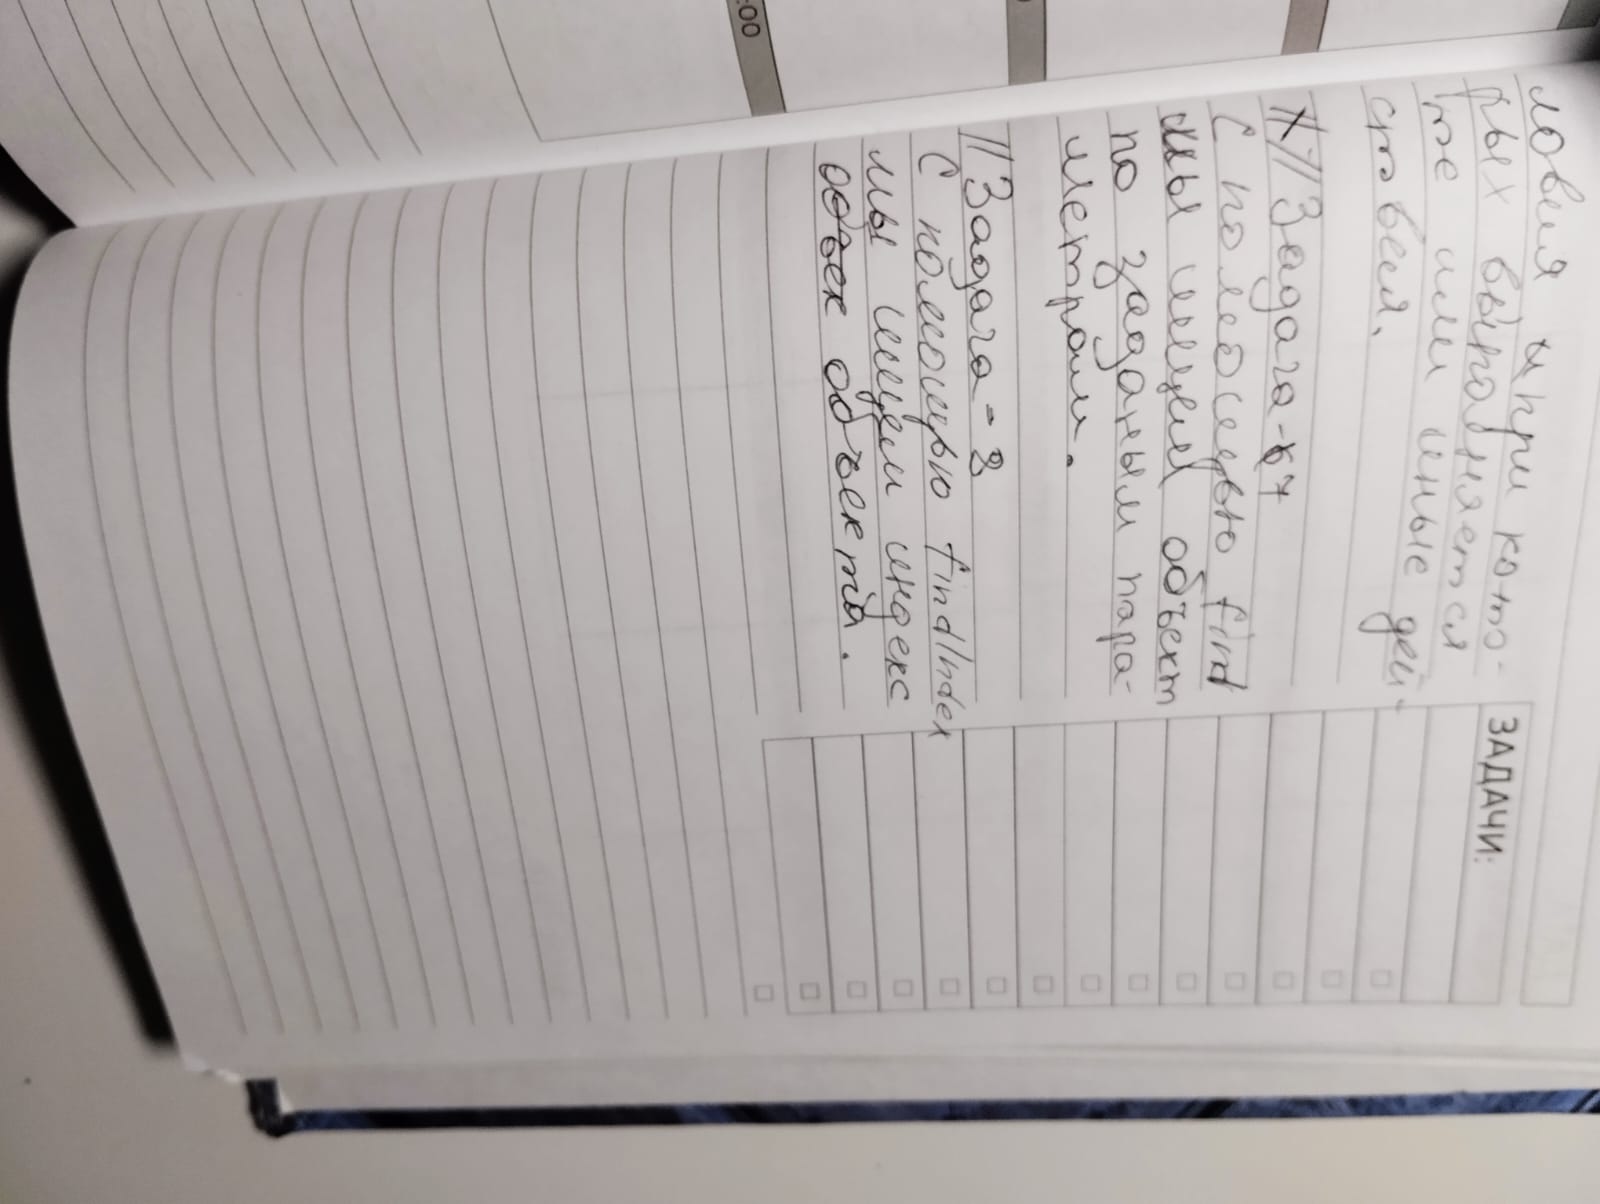 ловия, при кото-
рых выполняется
те или иные дей-
ствия.
ЗАДАЧИ:
// Задача - 7
С помощью find
мы ищем объект
по заданым пара-
метрам.
// Задача - 8
С помощью findIndex
мы ищем индекс
объек объекта.
:00